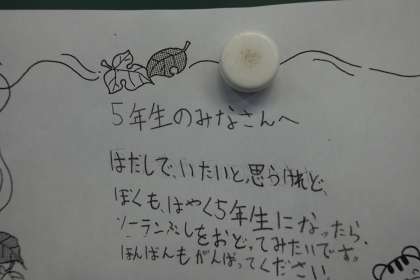 5年生のみなさんへ
はだしで、いたいと思うけれど、
ぼくも、はやく5年生になったら、
ソーランぶしをおどってみたいです。
ほんばんもがんばってください。